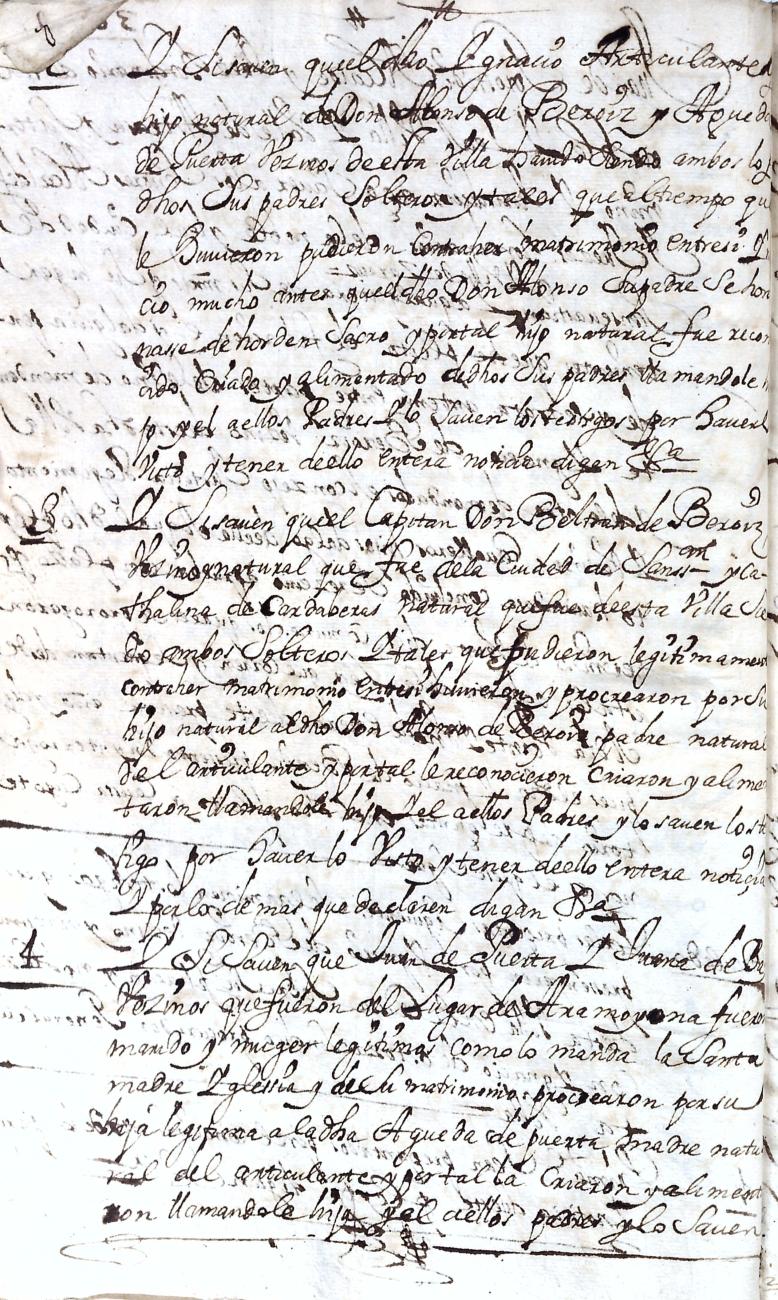 2 Y Si saven que el dho Ygnacio Articulante es
hijo natural de Don Alonso de Beroiz y Agueda
de Puerta Vezinos de esta Villa havido siendo ambos los
dhos Sus padres Solteros y tales que al tiempo que
le Huvieron pudieron Contraher matrimonio entresi Y
cio mucho antes que el dho Don Alonso Su padre Se hor
nasse de horden Sacro y portal hijo natural fue recon
cido Criado y alimentado de dhos Sus padres llamandole hi
jo y el aellos Padres Y lo Saven los testigos por haverlo
Visto y tener deello entera noticia digan &a
3 Y Si saven que el Capitan Don Beltran de Beroiz
Vezino y natural que fue dela Ciudad de San Ssan y Ca-
thalina de Cardaberas natural que fue de esta Villa Sien
do ambos Solteros Y tales que pudieron legitimamente
contraher matrimonio entresi huvieron y procrearon por Su
hijo natural al dho Don Alonso de Beroiz padre natural
del articulante y portal le reconocieron Criaron y alimen
taron llamandole hijo Y el aellos Padres y lo saven los tes
tigos por haverlo Visto y tener deello entera noticia
Y por lo de mas que declaren digan &a
4 Y Si Saven que Juan de Puerta Y Juana de
Vezinos que fueron del Lugar de Aramoyona fueron
marido y muger legitimos como lo manda la Santa
madre Yglessia y de Su matrimonio procrearon por su
hija legitima a la dha Agueda de puerta madre natu
ral del articulante y portal la Criaron y aliment
ron llamandole hija y el aellos padres y lo Saven